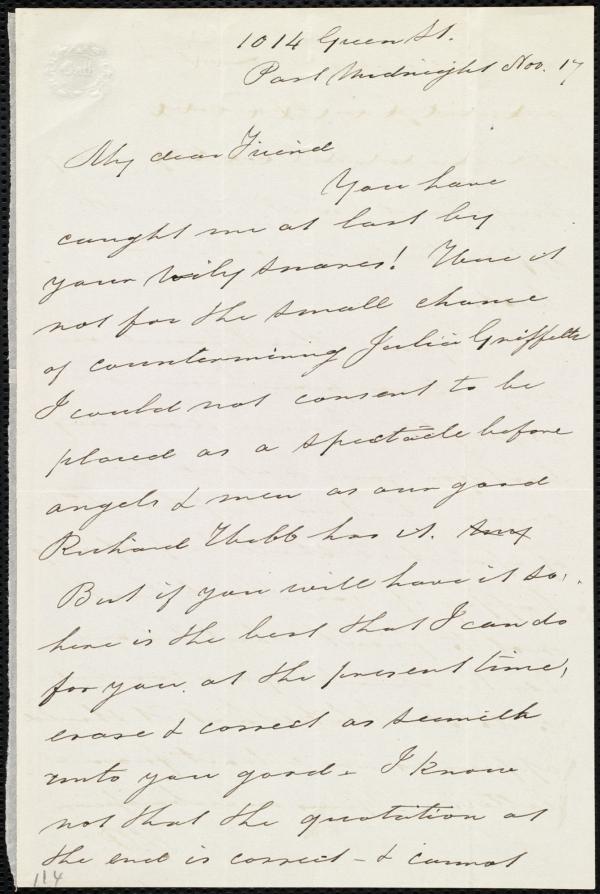 1014 Green St.
Past Midnight Nov. 17
My dear Friend
You have
caught me at last by
your wily snares! Were it
not for the small chance
of countermining Julia Griffiths
I could not consent to be
placed as a spectacle before
angels & men as our good
Richard Webb has it.
But if you will have it so,
here is the best that I can do
for you at the present time,
erase & correct as seemeth
unto you good. I know
not that the quotation at
the end is correct - & cannot
114